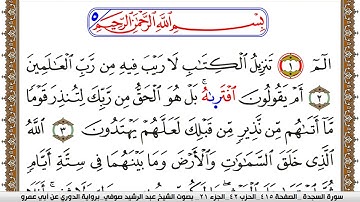 بِسْمِ ٱللَّهِ ٱلرَّحْمَٰنِ ٱلرَّحِيمِ
الٓمٓ ١ تَنزِيلُ ٱلْكِتَٰبِ لَا رَيْبَ فِيهِ مِن رَّبِّ ٱلْعَٰلَمِينَ
٢ أَمْ يَقُولُونَ ٱفْتَرَىٰهُ بَلْ هُوَ ٱلْحَقُّ مِن رَّبِّكَ لِتُنذِرَ قَوْمًا
مَّا أَتَىٰهُم مِّن نَّذِيرٍ مِّن قَبْلِكَ لَعَلَّهُمْ يَهْتَدُونَ ٣ ٱللَّهُ
ٱلَّذِى خَلَقَ ٱلسَّمَٰوَٰتِ وَٱلْأَرْضَ وَمَا بَيْنَهُمَا فِى سِتَّةِ أَيَّامٍ
سورة السجدة الصفحة ٤١٥ الحزب ٤٢ الجزء ٢١ بصوت الشيخ عبد الرشيد صوفي برواية الدوري عن أبي عمرو